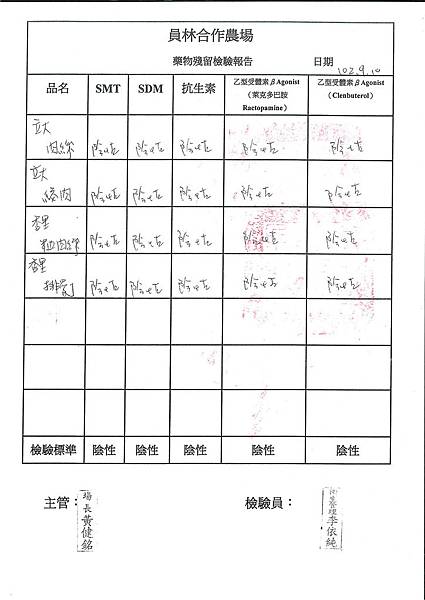 員林合作農場
藥物殘留檢驗報告 日期 102.9.10
品名 SMT SDM 抗生素 乙型受體素βAgonist（萊克多巴胺Ractopamine） 乙型受體素βAgonist（Clenbuterol）
立大
肉絲 陰性 陰性 陰性 陰性 陰性
立大
絞肉 陰性 陰性 陰性 陰性 陰性
香里
粗肉絲 陰性 陰性 陰性 陰性 陰性
香里
排骨丁 陰性 陰性 陰性 陰性 陰性
檢驗標準 陰性 陰性 陰性 陰性 陰性
主管： 場長黃健銘 檢驗員： 衛生管理李依純